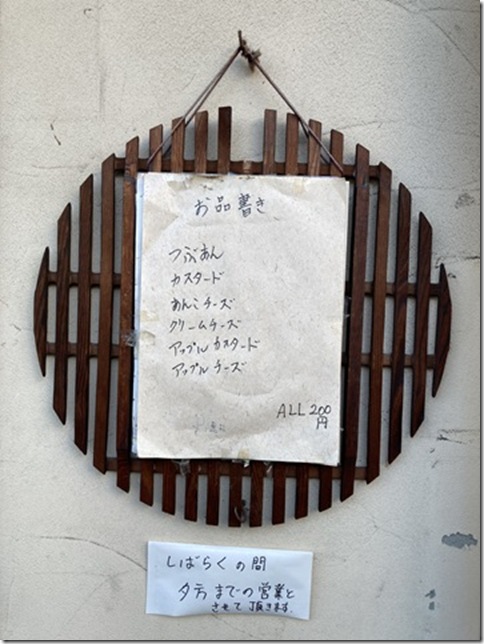 お品書き
つぶあん
カスタード
あんこチーズ
クリームチーズ
アップルカスタード
アップルチーズ
ALL 200
円
しばらくの間
夕方までの営業と
させて頂きます。